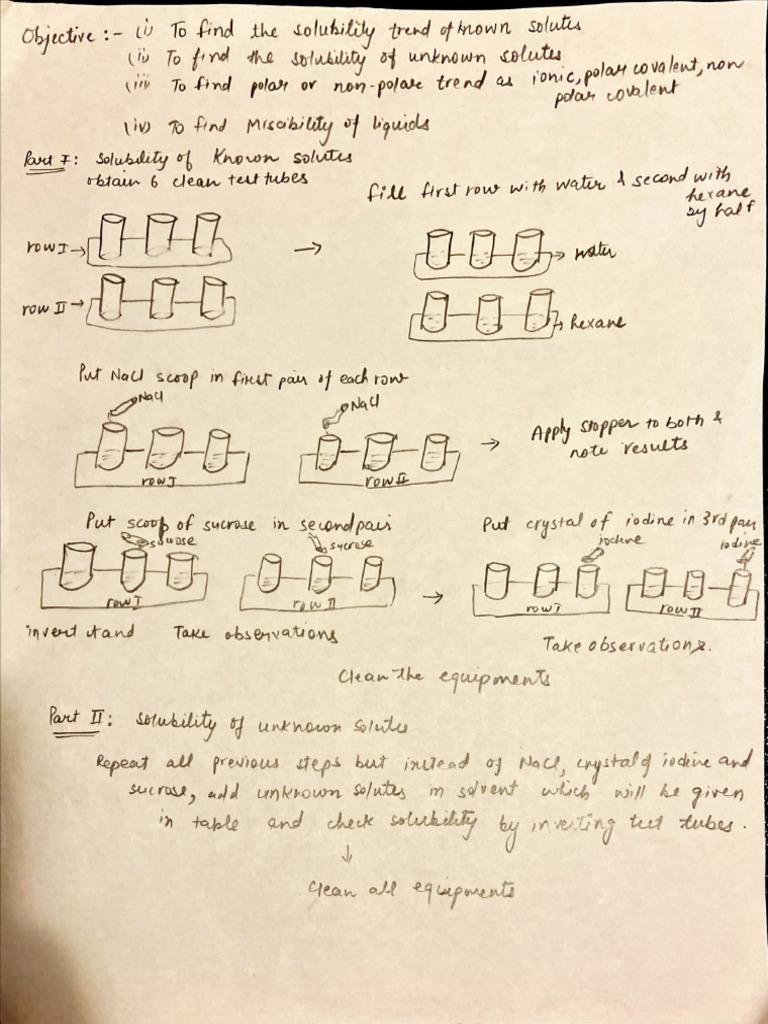 Objective :- (i) To find the solubility trend of known solutes
(ii) To find the solubility of unknown solutes
(iii) To find polar or non-polar trend as ionic, polar covalent, non
polar covalent
(iv) To find Miscibility of liquids
Part I : Solubility of Known solutes
obtain 6 clean test tubes
fill first row with water & second with
hexane
by half
row I →
→
→ water
row II →
→ hexane
Put NaCl scoop in first pair of each row
NaCl
NaCl
→
Apply stopper to both &
note results
row I
row II
Put scoop of sucrose in second pair
Put crystal of iodine in 3rd pair
sucrose
sucrose
iodine
iodine
row I
row II
→
row I
row II
invert it and Take observations
Take observations.
Clean the equipments
Part II : Solubility of unknown solutes
Repeat all previous steps but instead of NaCl, crystal of iodine and
sucrose, add unknown solutes in solvent which will be given
in table and check solubility by inverting test tubes.
↓
Clean all equipments